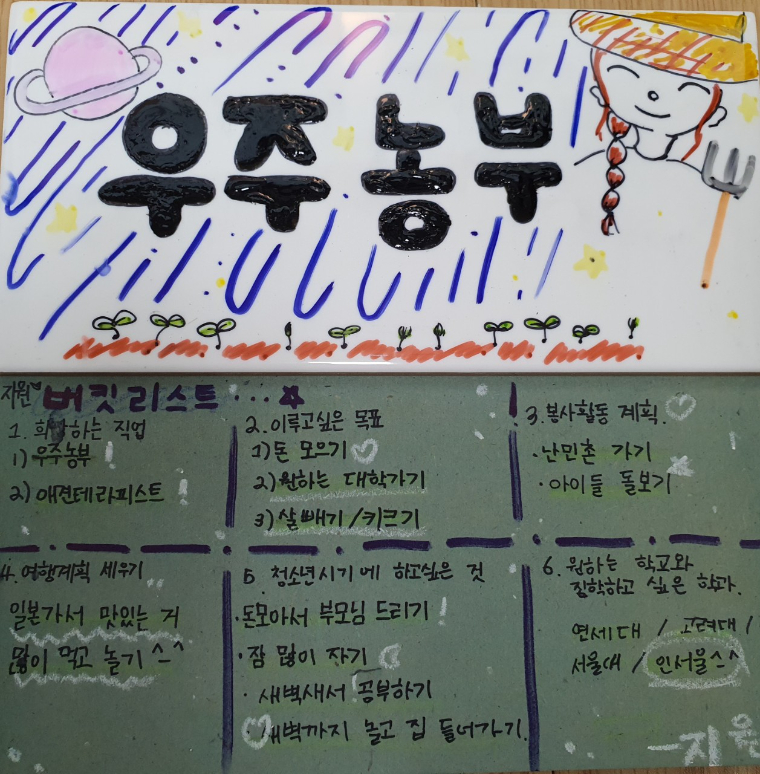 우주농부
지원 버킷리스트 ...
1. 희망하는 직업
1) 우주농부 !
2) 애견테라피스트 !
2. 이루고싶은 목표
1) 돈 모으기
2) 원하는 대학가기
3) 살빼기/키크기
3. 봉사활동 계획.
· 난민촌 가기
· 아이들 돌보기
4. 여행계획 세우기
일본가서 맛있는 거
많이 먹고 놀기 ^-^
5 청소년시기에 하고싶은 것
· 돈모아서 부모님 드리기 !
· 잠 많이 자기
· 새벽새서 공부하기
· 새벽까지 놀고 집 들어가기.
6. 원하는 학교와
진학하고 싶은 학과.
연세대 / 고려대 /
서울대 / 인서울^^
-지원